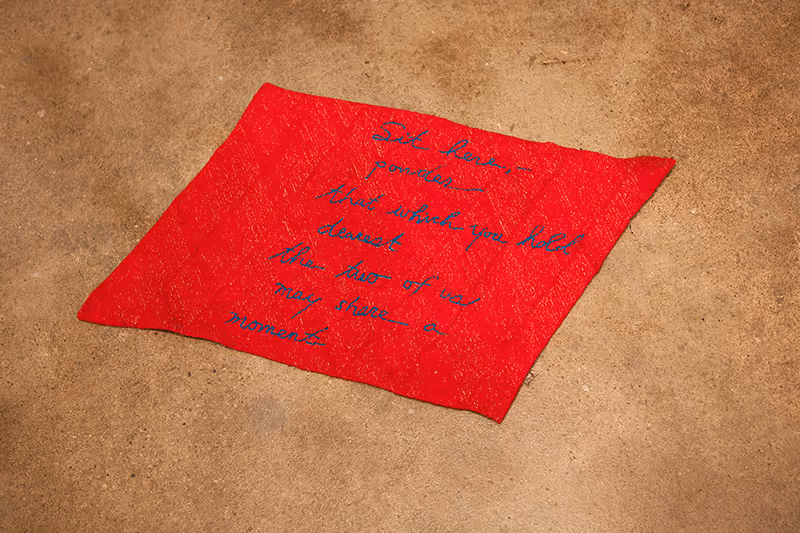 Sit here,
ponder
that which you hold
dearest
the two of us
may share a
moment